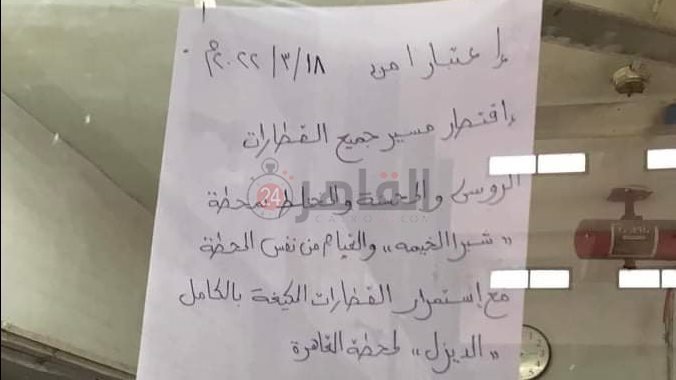 إعتبارا من ١٨/ ٣/ ٢٠٢٢م
إقتصار مسير جميع القطارات
الروسى والمحسنة والمختلط لمحطة
"شبرا الخيمه" والقيام من نفس المحطة
مع إستمرار القطارات المكيفة بالكامل
"الديزل" لمحطة القاهرة
القاهرة 24
CAIRO24.COM